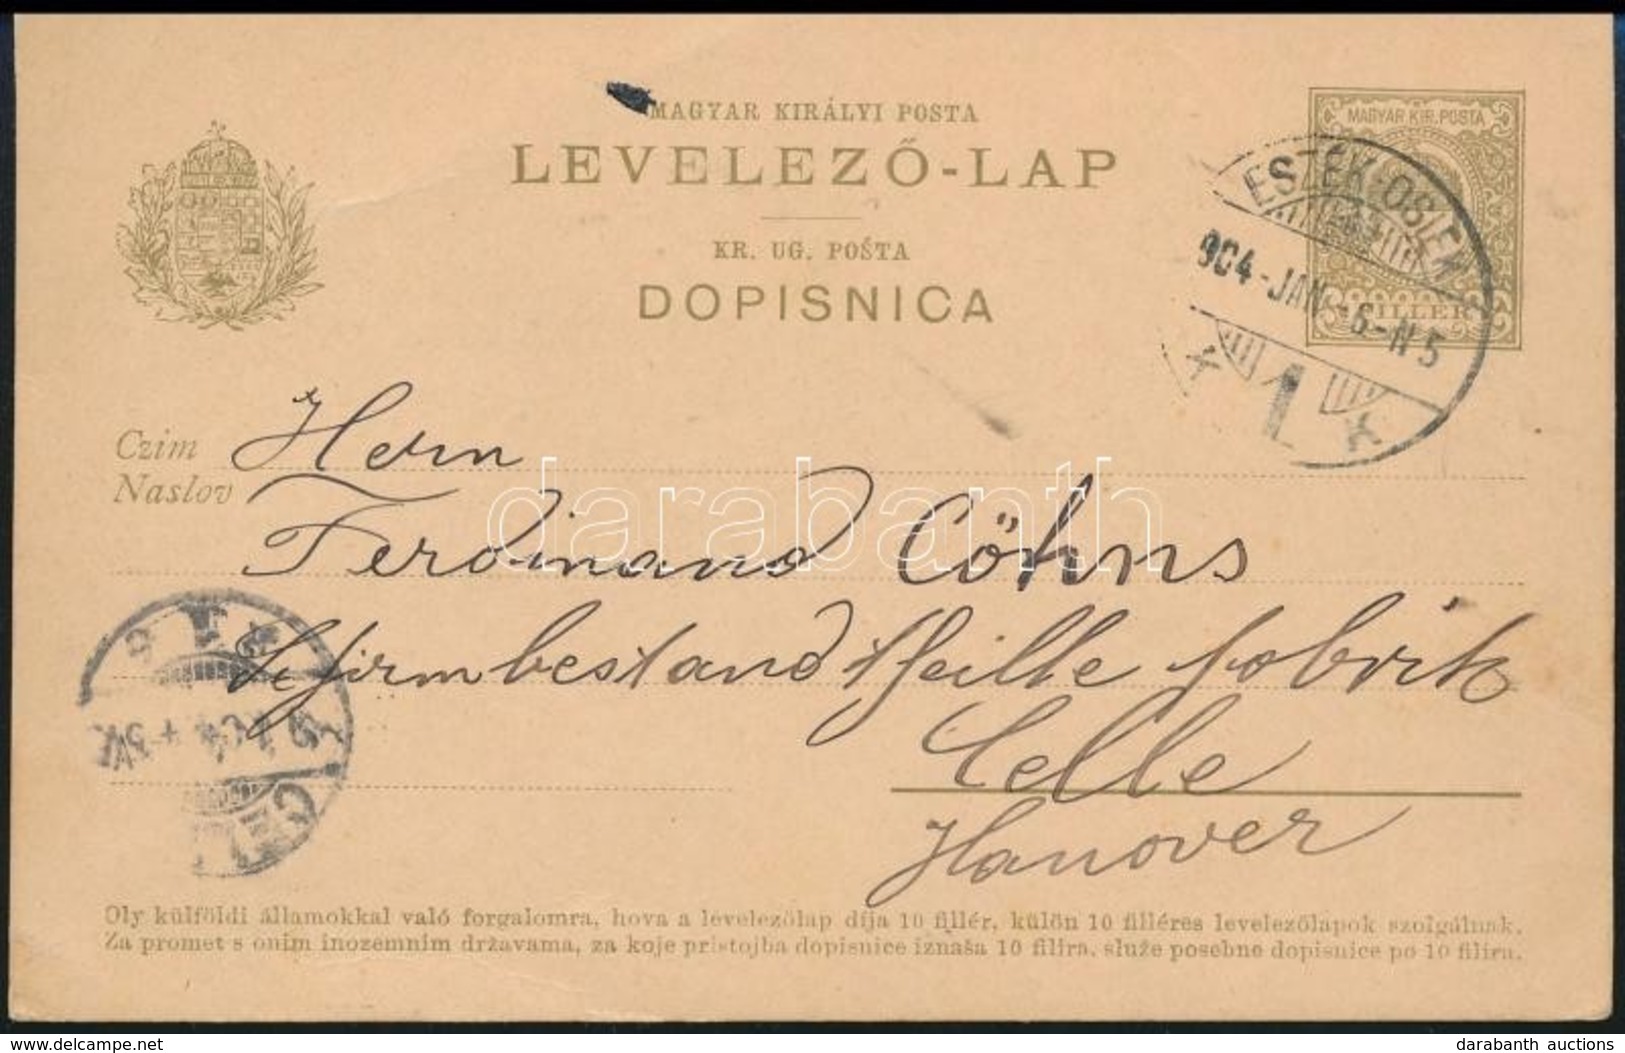 MAGYAR KIRÁLYI POSTA
LEVELEZŐ-LAP
KR. UG. POŠTA
DOPISNICA
MAGYAR KIR. POSTA
FILLÉR
ESZÉK-OSIEK
904-JAN.-6-N5
1
Czim
Naslov
Herrn
Ferdinand Cöhns
Schirmbestandtheille fabrik
Celle
Hanover
darabanth
Oly külföldi államokkal való forgalomra, hova a levelezőlap díja 10 fillér, külön 10 filléres levelezőlapok szolgálnak.
Za promet s onim inozemnim državama, za koje pristojba dopisnice iznaša 10 filira, služe posebne dopisnice po 10 filira.
delcampe.net
darabanth auctions